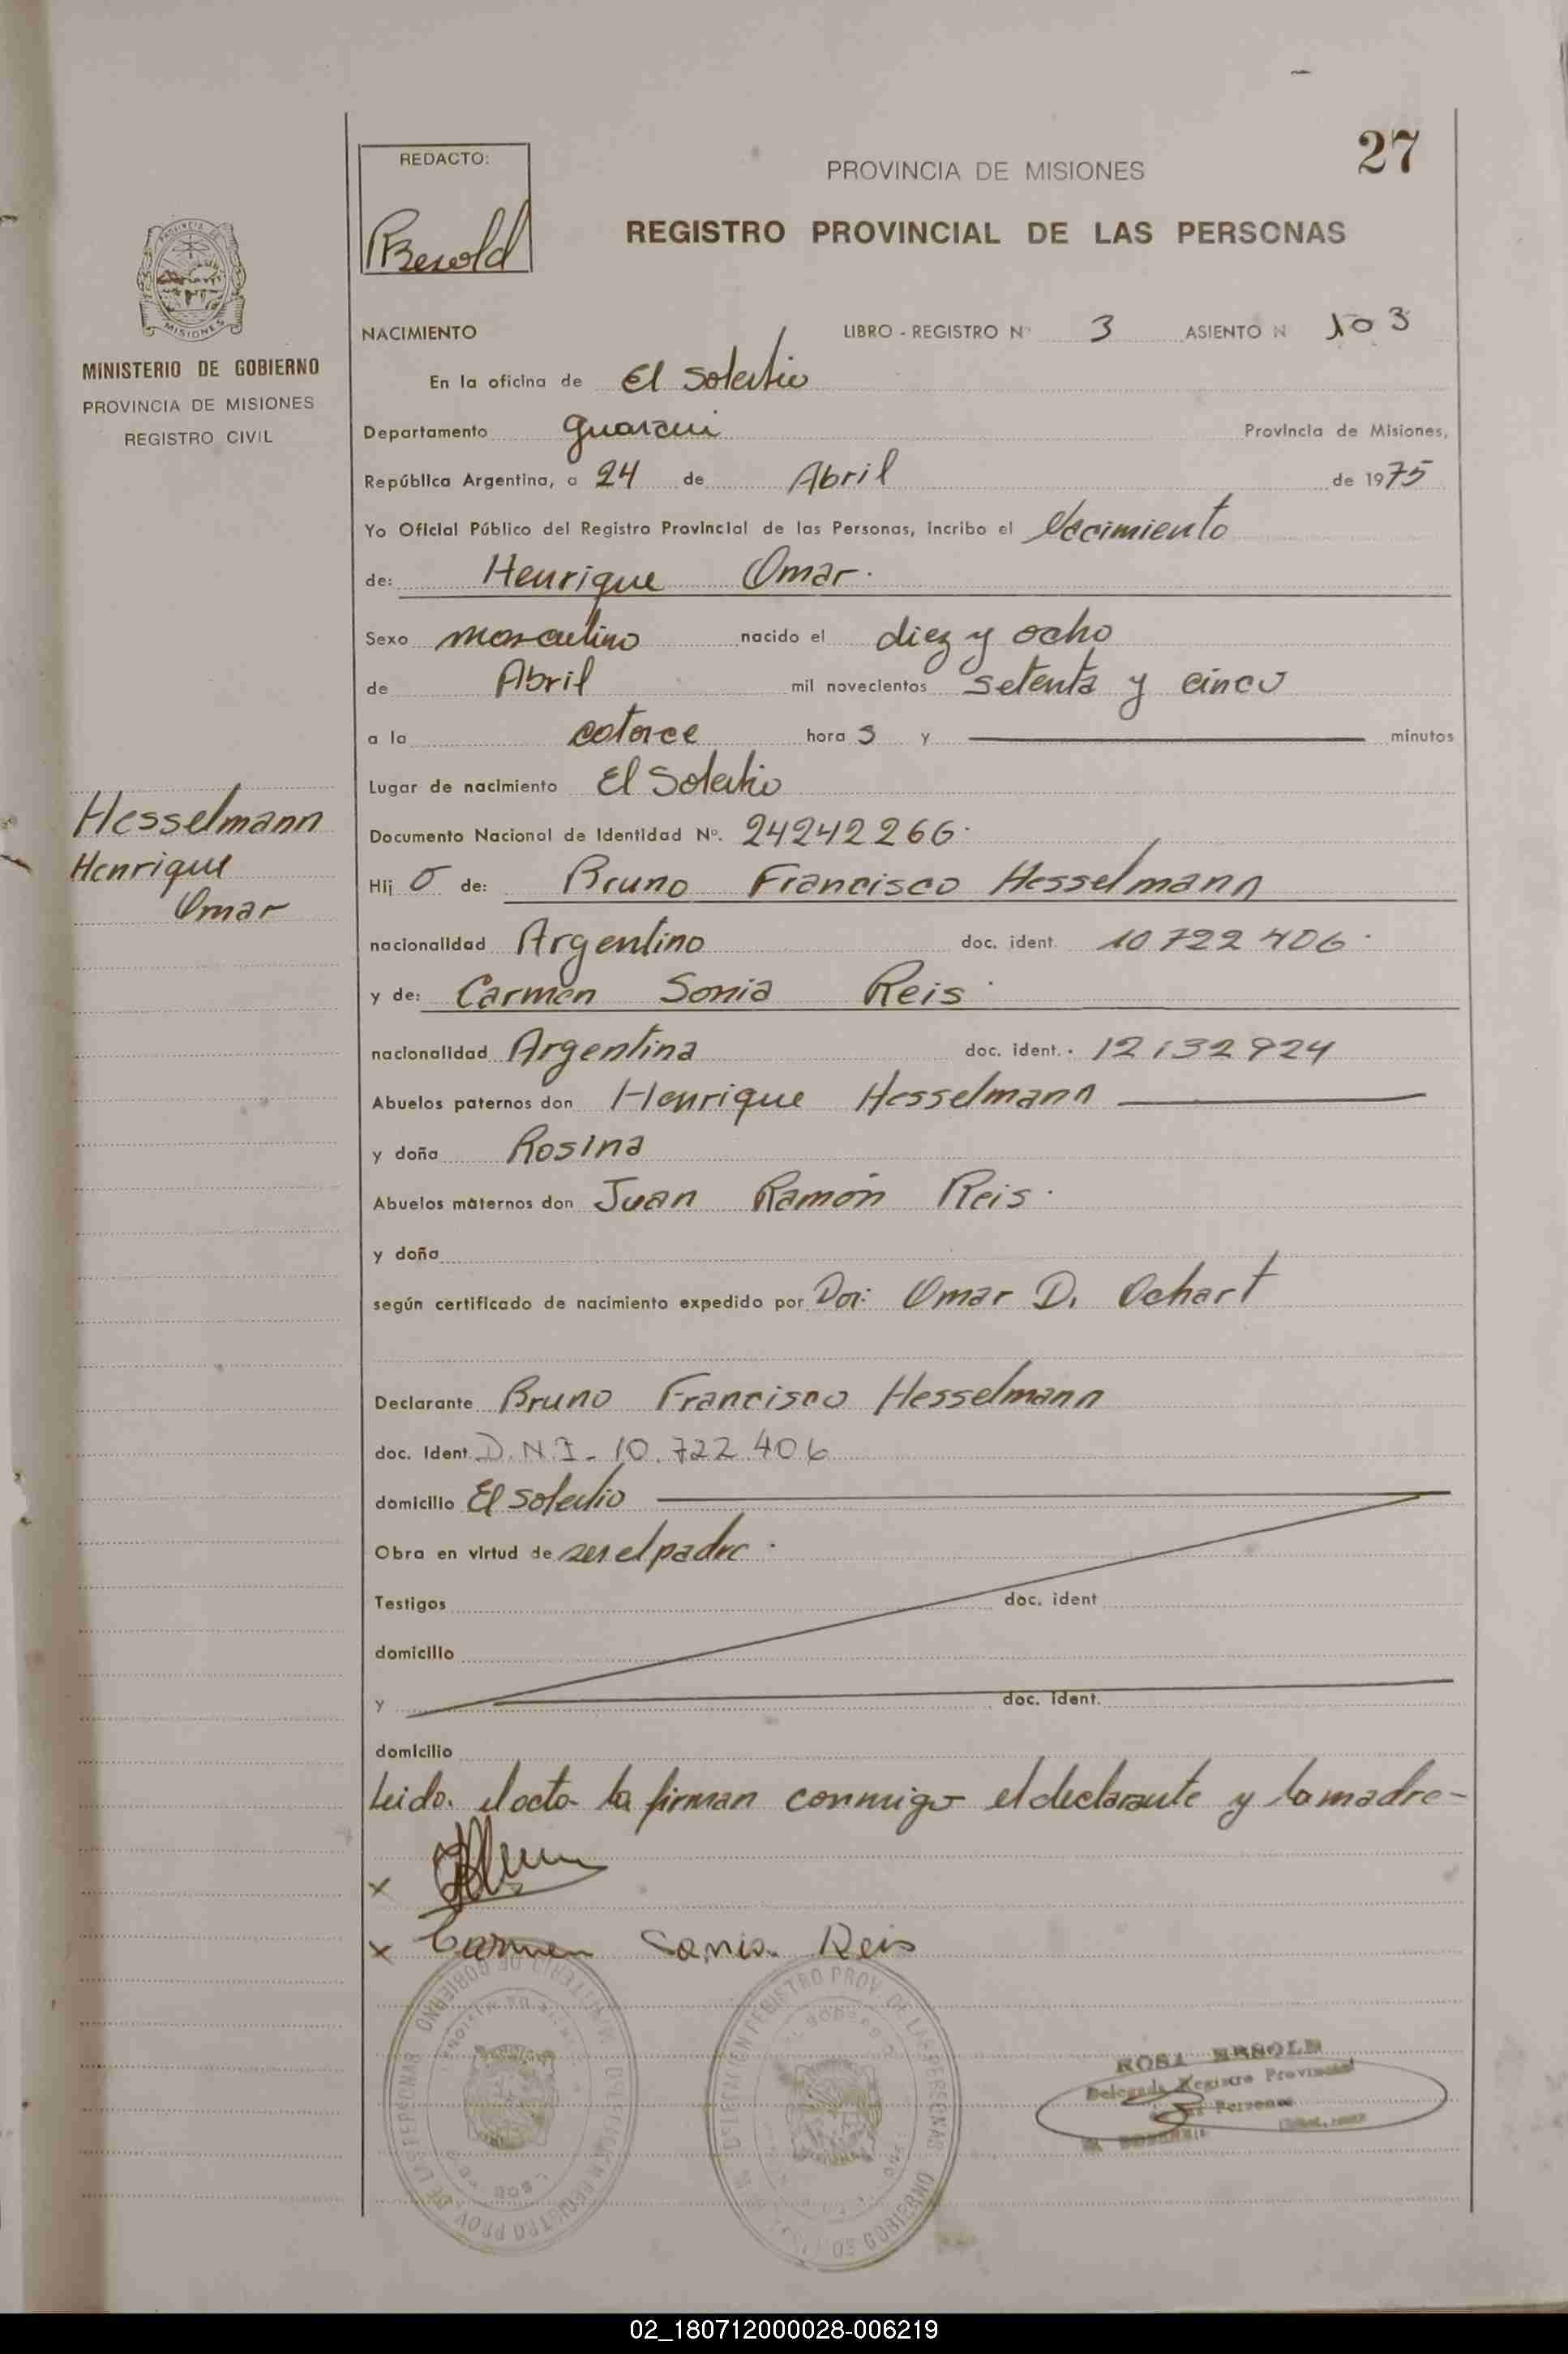 27
REDACTO:
PROVINCIA DE MISIONES
REGISTRO PROVINCIAL DE LAS PERSONAS
MISIONES
MINISTERIO DE GOBIERNO
PROVINCIA DE MISIONES
REGISTRO CIVIL
NACIMIENTO LIBRO - REGISTRO Nº 3 ASIENTO N 103
En la oficina de El Soberbio
Departamento Guarani Provincia de Misiones,
República Argentina, a 24 de Abril de 1975
Yo Oficial Público del Registro Provincial de las Personas, incribo el Nacimiento
de: Henrique Omar.
Sexo masculino nacido el diez y ocho
de Abril mil novecientos setenta y cinco
a la catorce hora s y minutos
Lugar de nacimiento El Soberbio
Hesselmann
Henrique
Omar
Documento Nacional de Identidad Nº. 24242266.
Hij o de: Bruno Francisco Hesselmann
nacionalidad Argentino doc. ident. 10 722 406.
y de: Carmen Sonia Reis.
nacionalidad Argentina doc. ident. 12132924
Abuelos paternos don Henrique Hesselmann
y doña Rosina
Abuelos maternos don Juan Ramón Reis.
y doña
según certificado de nacimiento expedido por Dor: Omar D. Ochart
Declarante Bruno Francisco Hesselmann
doc. Ident. D.N.I- 10.722.406
domicilio El Soberbio
Obra en virtud de ser el padre.
Testigos doc. ident
domicilio
y doc. ident.
domicilio
Leida el acta la firman conmigo el declarante y la madre-
x
x Carmen Sonia Reis
DIRECCION REGISTRO PROV. DE LAS PERSONAS MINISTERIO DE GOBIERNO
REGISTRO PROV. DE LAS PERSONAS
DE GOBIERNO
ROSA
Delegada Registro Provincial
de las Personas
02_180712000028-006219